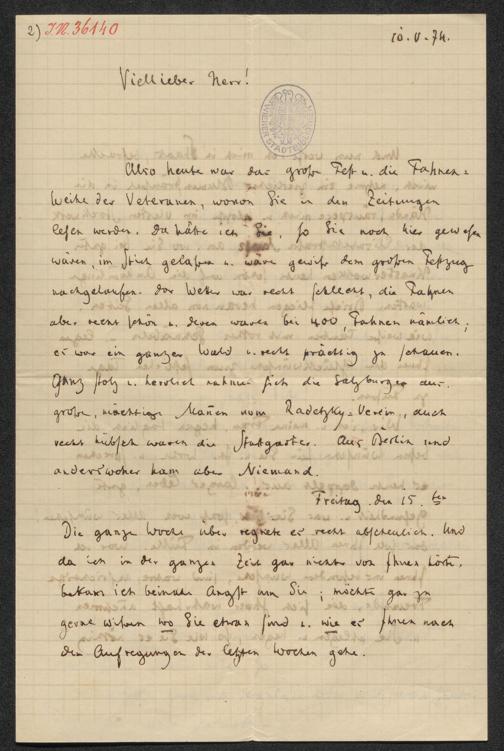 2) J.N. 36140
10. V. 74.
Viellieber Herr!
Also heute war das große Fest u. die Fahnen=
weihe der Veteranen, wovon Sie in den Zeitungen
lesen werden. Da hätte ich Sie, so Sie noch hier gewesen
wären, im Stich gelassen u. wäre gewiß dem großen Festzug
nachgelaufen. Das Wetter war recht schlecht, die Fahnen
aber recht schön u. deren waren bei 400, Fahnen nämlich;
es war ein ganzer Wald u. recht prächtig zu schauen.
Ganz stolz u. herrlich nahmen sich die Salzburger aus.
große, mächtige Männer vom Radetzky=Verein, auch
recht hübsch waren die Stuttgarter. Aus Berlin und
anderswoher kam aber Niemand.
Freitag den 15ten
Die ganze Woche über regnete es recht abscheulich. Und
da ich in der ganzen Zeit gar nichts von Ihnen hörte,
bekam ich beinahe Angst um Sie; möchte gar zu
gerne wissen wo Sie etwan sind u. wie es Ihnen nach
den Aufregungen der letzten Wochen gehe.